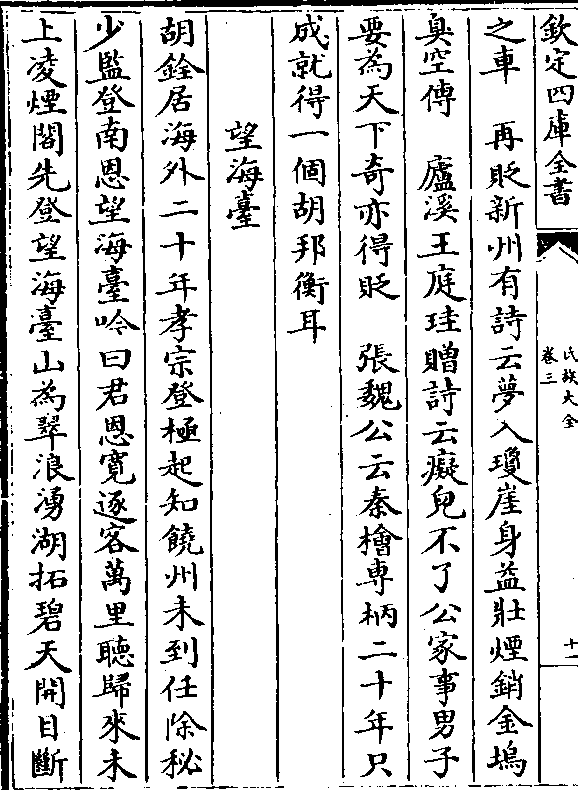 欽定四庫全書
氏族大全
卷三
十一
之車　再貶新州有詩云夢入瓊崖身益壯煙銷金塢
臭空傳　廬溪王庭珪贈詩云癡兒不了公家事男子
要為天下奇亦得貶　張魏公云秦檜専柄二十年只
成就得一個胡邦衡耳
望海臺
胡銓居海外二十年孝宗登極起知饒州未到任除秘
少監登南恩望海臺吟曰君恩寛逐客萬里聴歸來未
上凌煙閣先登望海臺山為翠浪湧湖拓碧天開目斷